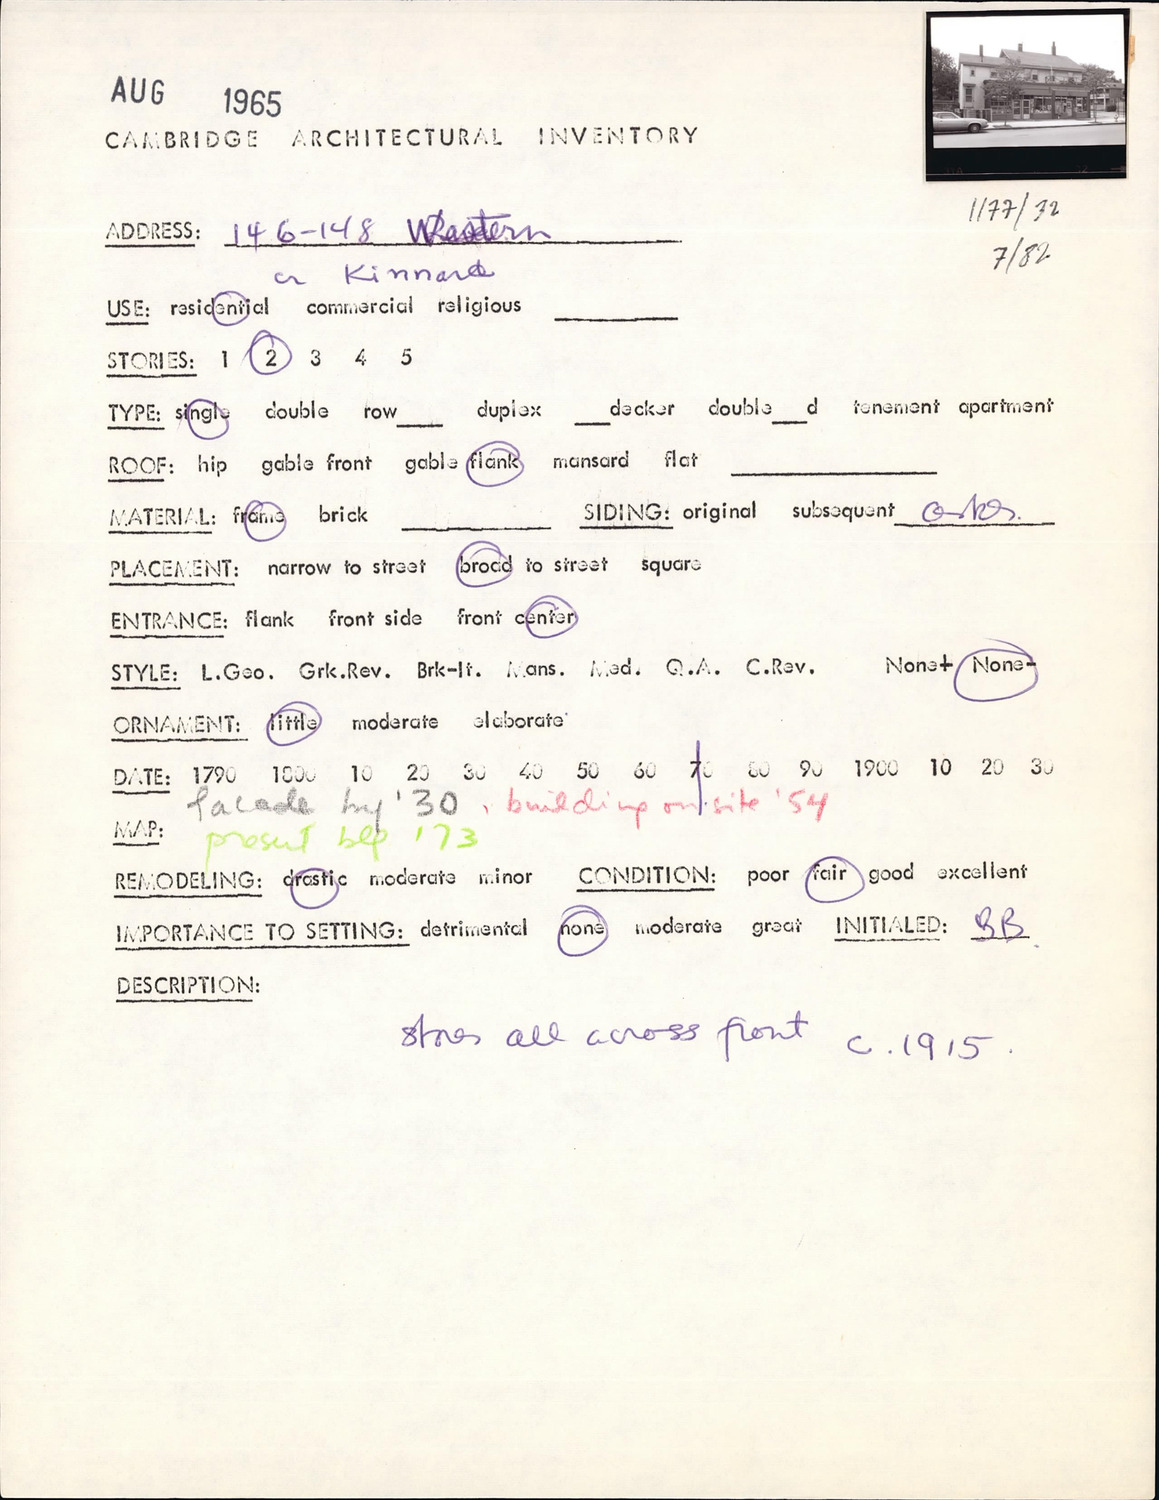 AUG 1965
CAMBRIDGE ARCHITECTURAL INVENTORY
1177/32
7/82
ADDRESS: 146-148 Western
cr Kinnard
USE: residential commercial religious
STORIES: 1 2 3 4 5
TYPE: single double row___ duplex ___decker double___d tenement apartment
ROOF: hip gable front gable flank mansard flat
MATERIAL: frame brick SIDING: original subsequent
PLACEMENT: narrow to street broad to street square
ENTRANCE: flank front side front center
STYLE: L.Geo. Grk.Rev. Brk-It. Mans. Med. Q.A. C.Rev. None+ None-
ORNAMENT: little moderate elaborate
DATE: 1790 1800 10 20 30 40 50 60 70 80 90 1900 10 20 30
facade by '30, building on site '54
MAP: present bldg '73
REMODELING: drastic moderate minor CONDITION: poor fair good excellent
IMPORTANCE TO SETTING: detrimental none moderate great INITIALED: BB
DESCRIPTION:
stores all across front c. 1915.